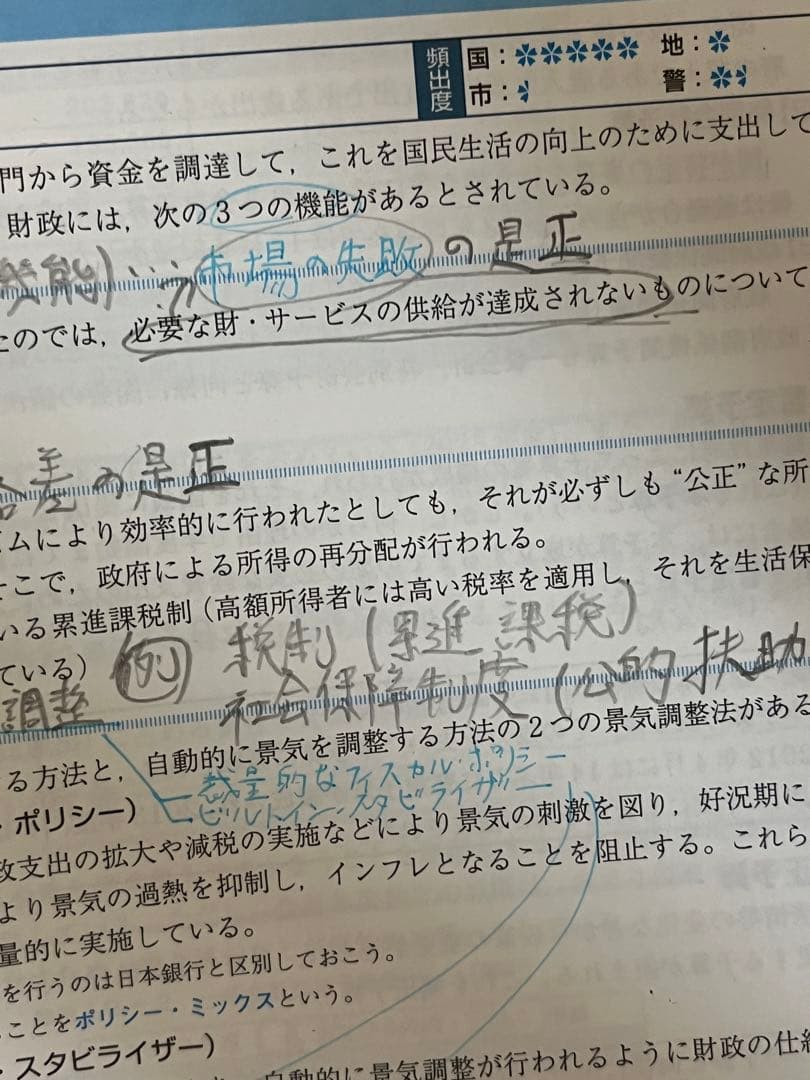 頻出度 国：✽✽✽✽✽ 地：✽
市： 警：✽
門から資金を調達して，これを国民生活の向上のために支出して
財政には，次の3つの機能があるとされている。
機能) 市場の失敗の是正
たのでは，必要な財・サービスの供給が達成されないものについて
格差の是正
テムにより効率的に行われたとしても，それが必ずしも“公正”な所
そこで，政府による所得の再分配が行われる。
いる累進課税制（高額所得者には高い税率を適用し，それを生活保
ている）
例 税制(累進課税)
調整 社会保障制度(公的扶助
る方法と，自動的に景気を調整する方法の2つの景気調整法がある
裁量的なフィスカル・ポリシー
・ポリシー）
ビルトイン・スタビライザー
政支出の拡大や減税の実施などにより景気の刺激を図り，好況期に
より景気の過熱を抑制し，インフレとなることを阻止する。これら
量的に実施している。
を行うのは日本銀行と区別しておこう。
ことをポリシー・ミックスという。
・スタビライザー）
自動的に景気調整が行われるように財政の仕組